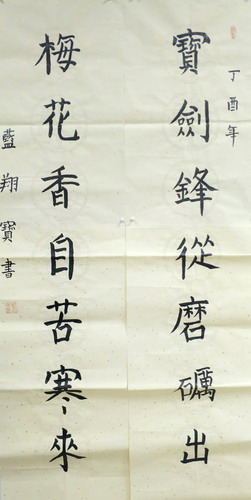 丁酉年
寶劍鋒從磨礪出
梅花香自苦寒來
藍翔寶書